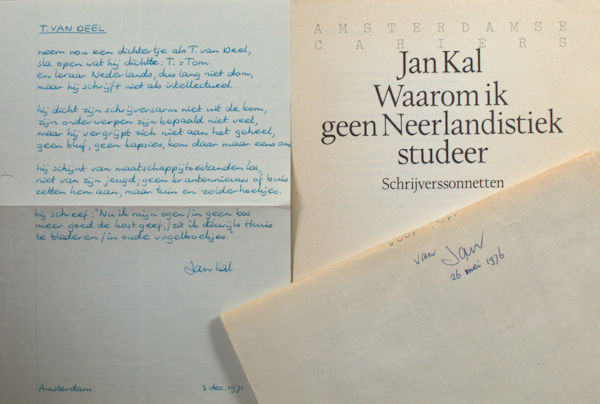 T. VAN DEEL
neem nou een dichtertje als T. van Deel,
sla open wat hij dichtte: T. = Tom
en leraar Nederlands, dus lang niet dom,
maar hij schrijft niet als intellectueel.
hij dicht zijn schrijversarm niet uit de kom,
zijn onderwerpen zijn bepaald niet veel,
maar hij vergrijpt zich niet aan het geheel,
geen bluf, geen kapsies, kom daar maar eens om
hij schijnt van maatschappijtoestanden los,
niet van zijn jeugd; geen krantennieuws of buis
zetten hem aan, maar tuin en zolderhoekjes.
hij schreef: "Nu ik mijn ogen / in geen bos
meer goed de kost geef, / zit ik dikwijls thuis
te bladeren / in oude vogelboekjes."
Jan Kal
Amsterdam
3 dec. 1971
AMSTERDAMSE
CAHIERS
Jan Kal
Waarom ik
geen Neerlandistiek
studeer
Schrijverssonnetten
voor Tom
van Jan
26 mei 1976